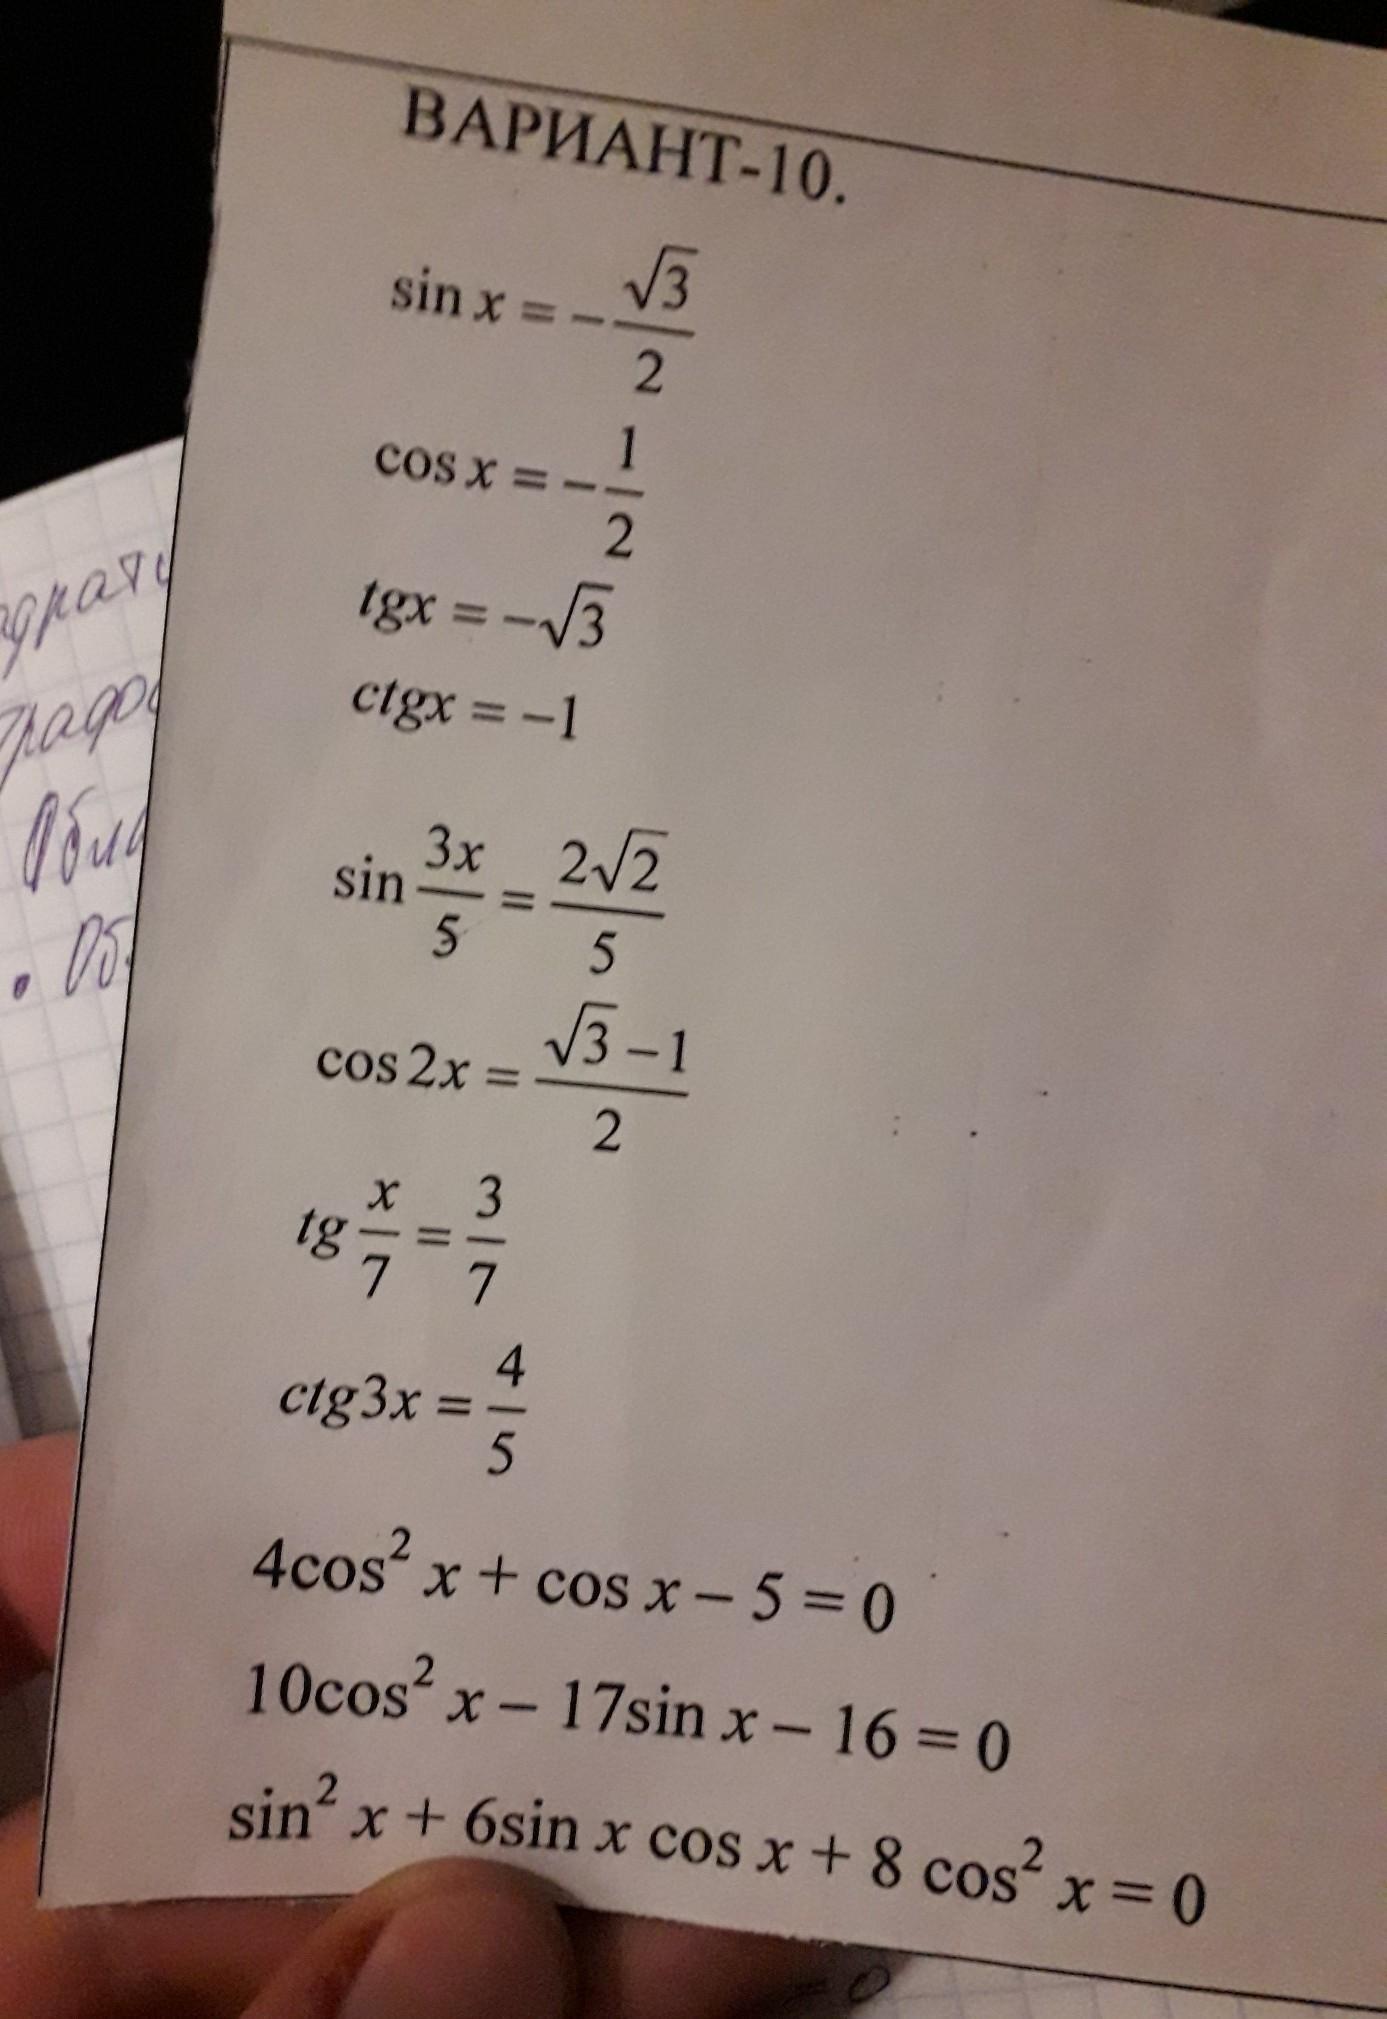 ВАРИАНТ-10.
sin x = -√3/2
cos x = -1/2
tgx = -√3
ctgx = -1
sin 3x/5 = 2√2/5
cos 2x = (√3 - 1)/2
tg x/7 = 3/7
ctg3x = 4/5
4cos² x + cos x - 5 = 0
10cos² x - 17sin x - 16 = 0
sin² x + 6sin x cos x + 8 cos² x = 0
= 0